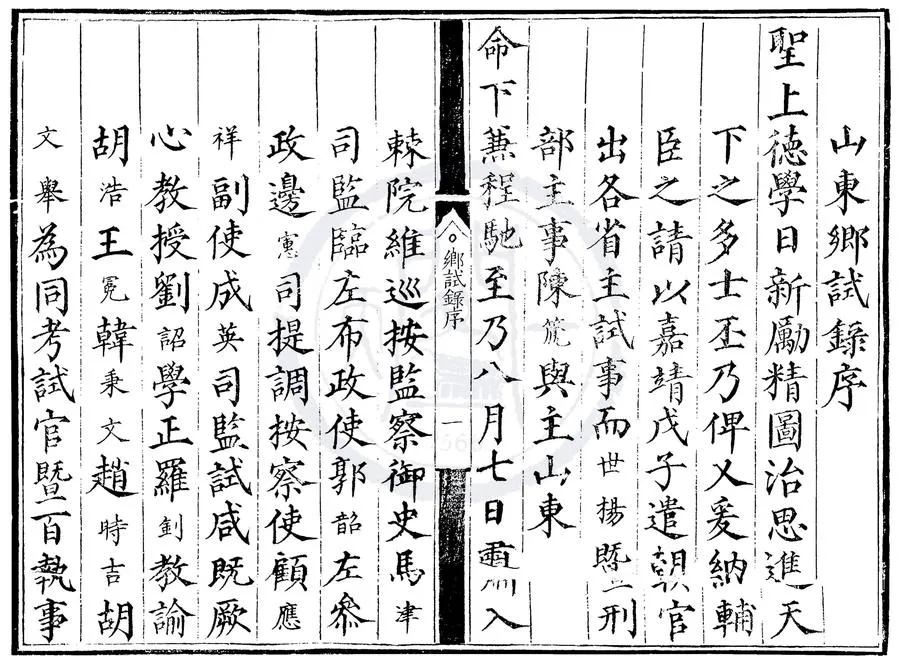 山東鄉試錄序
聖上德學日新勵精圖治思進天
下之多士丕乃俾乂爰納輔
臣之請以嘉靖戊子遣朝官
出各省主試事而世揚暨刑
部主事陳箎與主山東
命下兼程馳至乃八月七日肅入
鄉試錄序
一
棘院維巡按監察御史馬津
司監臨左布政使郭韶左參
政邊憲司提調按察使顧應
祥副使成英司監試咸既厥
心教授劉詔學正羅釗教諭
胡浩王冕韓秉文趙時吉胡
文舉為同考試官暨百執事